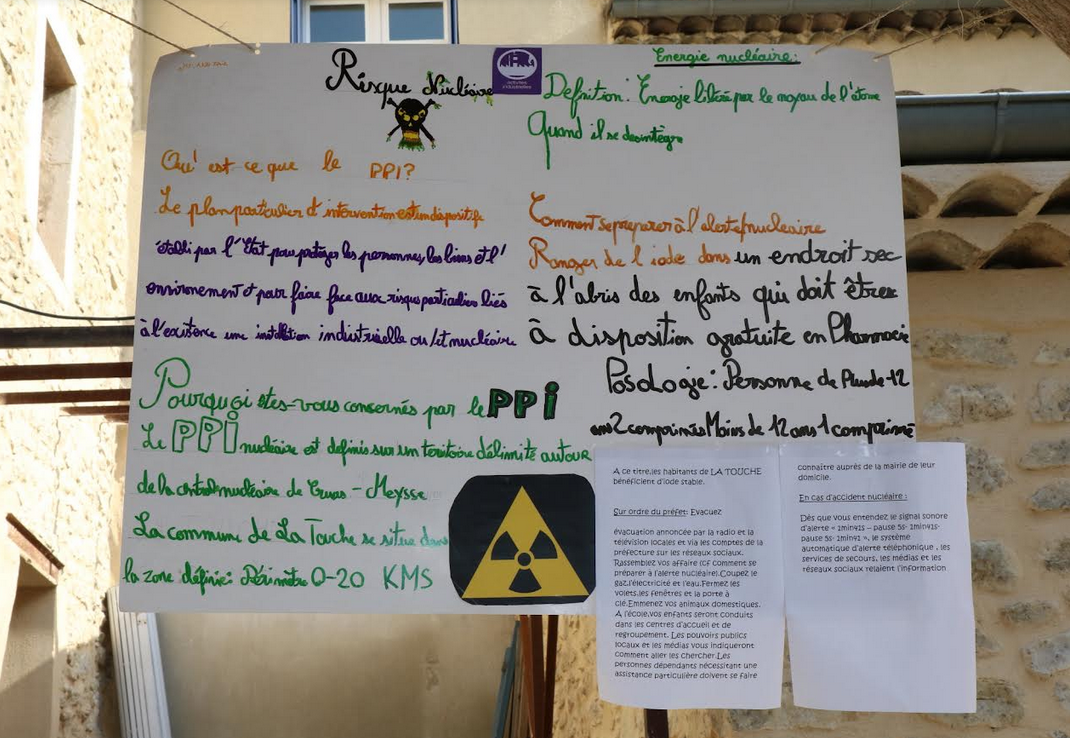 Risque Nucléaire
activités
industrielles
Qu' est ce que le PPI?
Le plan particulier d'intervention est un dispositife
établi par l'Etat pour protéger les personnes, les biens et l'
environement et pour faire face aux risques particuliers liés
à l'existence une instaltion industrielle ou/et nucléaire
Pourquoi êtes-vous concernés par le PPi
Le PPi nucléaire est définis sur un teritoire délimité autour
de la central nucléaire de Cruas-Meysse
La commune de La Touche se situe dans
la zone définie: Périmètre 0-20 KMS
Energie nucléaire:
Définition: Energie libéré par le noyau de l'atome
Quand il se desintègre
Comment se preparer à l'alerte nucleaire
Ranger de l'iode dans un endroit sec
à l'abris des enfants qui doit êtres
à disposition gratuite en Pharmacie
Posologie: Personne de Plus de 12
ans 2 comprimés Moins de 12 ans 1 comprimé
A ce titre,les habitants de LA TOUCHE
bénéficient d'iode stable.
Sur ordre du préfet: Evacuez
évacuation annoncée par la radio et la
télévision locales et via les comptes de la
préfecture sur les réseaux sociaux.
Rassemblez vos affaire (cf comment se
préparer à l'alerte nucléaire).Coupez le
gaz,l'électricité et l'eau.Fermez les
volets,les fenêtres et la porte à
clé.Emmenez vos animaux domestiques.
A l'école,vos enfants seront conduits
dans les centres d'accueil et de
regroupement. Les pouvoirs publics
locaux et les médias vous indiqueront
comment aller les chercher.Les
personnes dépendants nécessitant une
assistance particulière doivent se faire
connaître auprès de la mairie de leur
domicile.
En cas d'accident nucléaire :
Dès que vous entendez le signal sonore
d'alerte « 1min41s – pause 5s- 1min41s-
pause 5s- 1min41 », le système
automatique d'alerte téléphonique , les
services de secours, les médias et les
réseaux sociaux relaient l'information